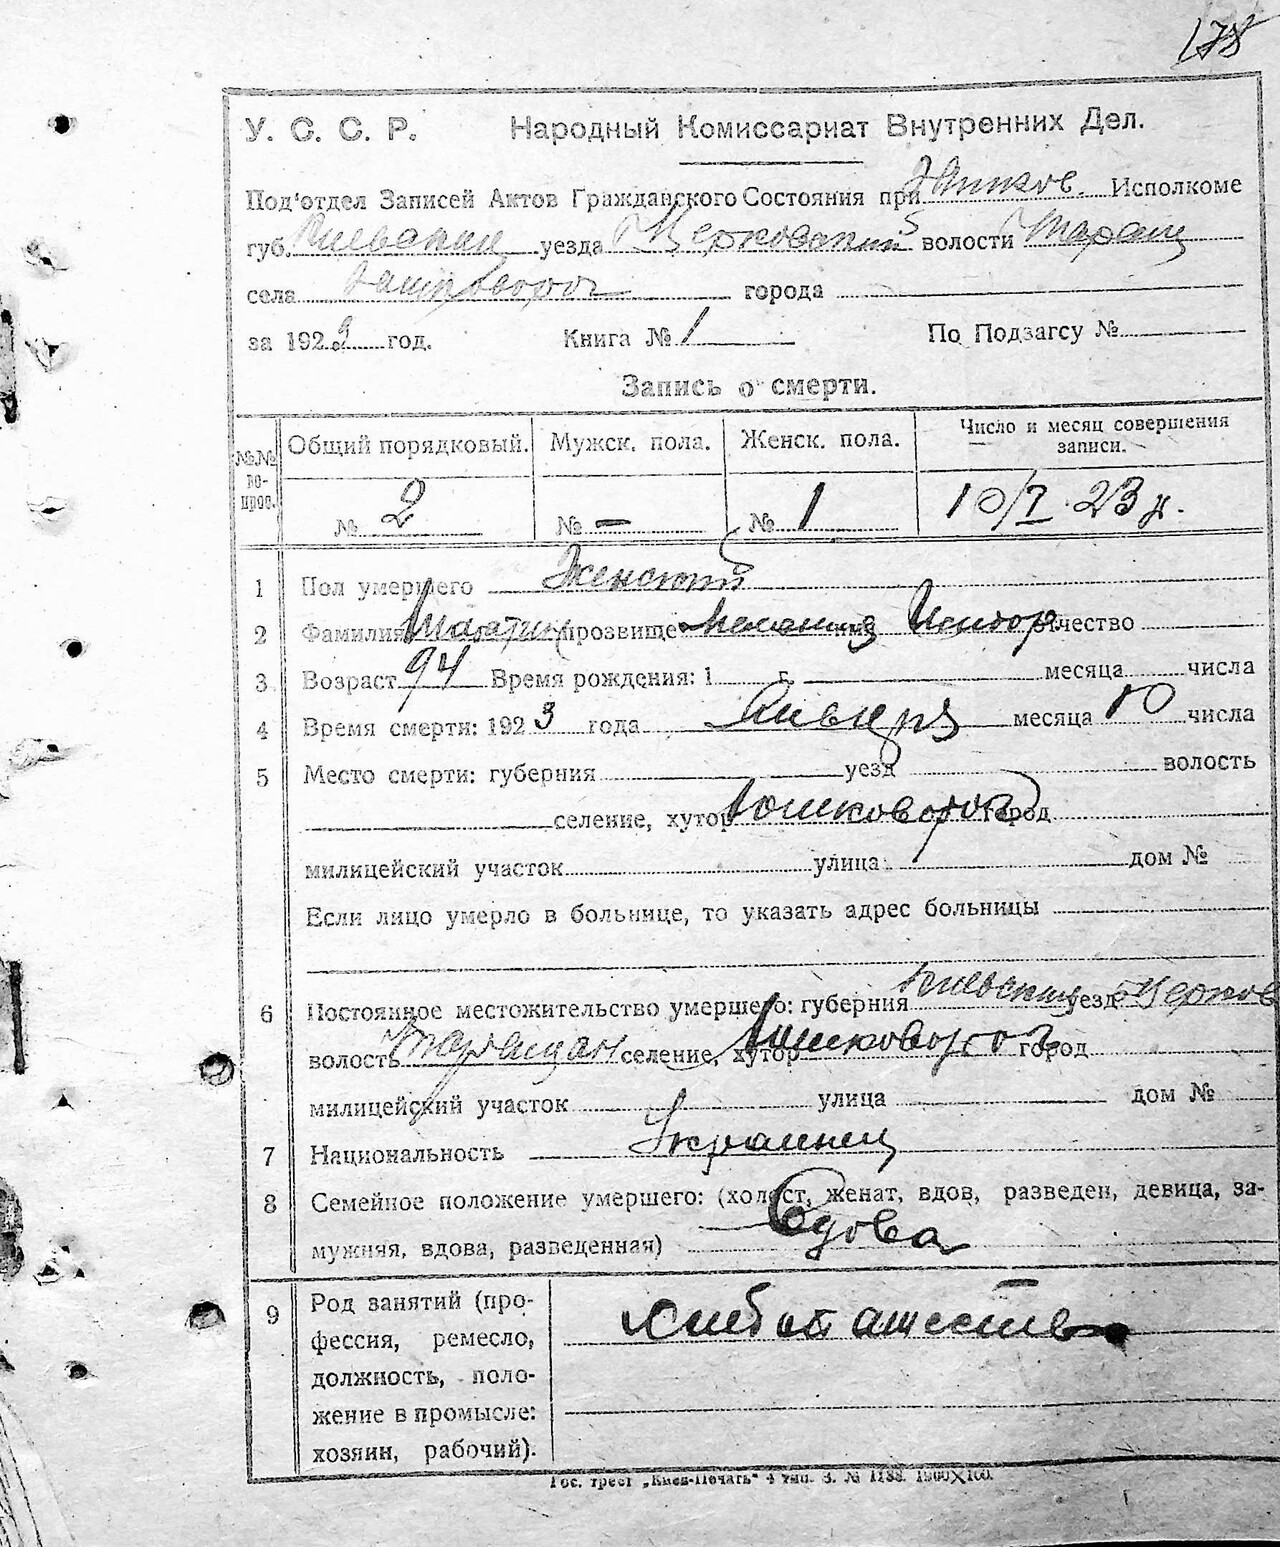 178
У. С. С. Р. Народный Комиссариат Внутренних Дел.
Под'отдел Записей Актов Гражданского Состояния при Исполкоме
губ. Киевская уезда Церковский волости Таращ
села города
за 1923 год. Книга № 1 По Подзагсу №
Запись о смерти.
№№ во-прос. Общий порядковый. Мужск. пола. Женск. пола. Число и месяц совершения записи.
№ 2 № — № 1 10/I 23 г.
1 Пол умершего Женский
2 Фамилия прозвище Мелания имя Исидор отчество
3 Возраст 94 Время рождения: 1 г. месяца числа
4 Время смерти: 1923 года Января месяца 10 числа
5 Место смерти: губерния уезд волость
селение, хутор город
милицейский участок улица дом №
Если лицо умерло в больнице, то указать адрес больницы
6 Постоянное местожительство умершего: губерния Киевская уезд Церков
волость Таращан селение, хутор город
милицейский участок улица дом №
7 Национальность Украинец
8 Семейное положение умершего: (холост, женат, вдов, разведен, девица, за-
мужняя, вдова, разведенная) Вдова
9 Род занятий (про-
фессия, ремесло,
должность, поло-
жение в промысле:
хозяин, рабочий).
Гос. трест „Киев-Печать" 4 тип. З. № 1188. 1900×100.